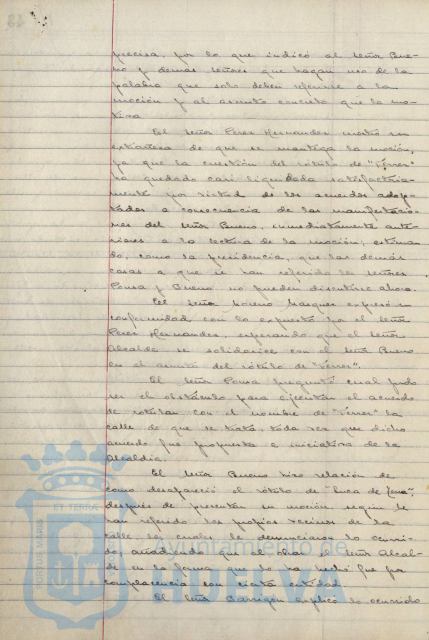 precisa, por lo que indicó al señor Bue-
no y demas señores que hagan uso de la
palabra que solo deben referirse a la
moción y al asunto concreto que la mo-
tiva
El señor Perez Hernandez mostró su
extrañeza de que se mantenga la moción,
ya que la cuestión del rótulo de
ha quedado casi liquidada satisfactoria-
mente por virtud de los acuerdos adop-
tados a consecuencia de las manifestacio-
nes del señor Bueno, inmediatamente ante-
riores a la lectura de la moción; estiman-
do, como la presidencia, que las demás
cosas a que se han referido los señores
Ponsa y Bueno no pueden discutirse ahora.
El señor Moreno Marquez expresó su
conformidad con lo expuesto por el señor
Perez Hernandez, esperando que el señor
Alcalde se solidarice con el señor Bueno
en el asunto del rótulo de
El señor Ponsa preguntó cual pudo
ser el obstáculo para ejecutar el acuerdo
de rotular con el nombre de la
calle de que se trata, toda vez que dicho
acuerdo fue propuesta e iniciativa de la
Alcaldía.
El señor Bueno hizo relación de
como desapareció el rótulo de
después de presentar su moción según le
han referido los propios vecinos de la
calle, los cuales le denunciaron lo ocurri-
do, añadiendo que al obrar el señor Alcal-
de en la forma que lo ha hecho fue por
complacencia con cierta entidad.
El señor Barrigon explicó lo ocurrido
Ayuntamiento de
HUELVA
PORTUS MARIS
ET TERRAE